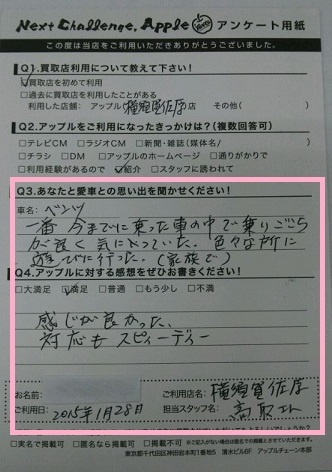 Next Challenge, Apple アンケート用紙
この度は当店をご利用いただきありがとうございました。
Q1.買取店利用について教えて下さい!
☑買取を初めて利用
□過去に買取を利用したことがある
利用した店舗: アップル 横須賀佐原 店 その他( )
Q2.アップルをご利用になったきっかけは?(複数回答可)
□テレビCM □ラジオCM □新聞・雑誌(媒体名/ )
□チラシ □DM □アップルのホームページ □通りがかりで
□利用経験があるので ☑紹介 □スタッフに誘われて
Q3.あなたと愛車との思い出を聞かせください!
車名: ベンツ
一番 今までに乗った車の中で乗りごこち
が良く気に入っていた。色々な所に
遊びに行った。(家族で)
Q4.アップルに対する感想をぜひお書きください!
□大満足 ☑満足 □普通 □もう少し □不満
感じが良かった、
対応もスピィーディー
お名前:
ご利用店名: 横須賀佐原
ご利用日: 2015年1月28日
担当スタッフ名: 高取さん
□実名で掲載可 □匿名なら掲載可 □掲載不可
東京都千代田区神田岩本町1番地5 清水ビル6F アップルチェーン本部